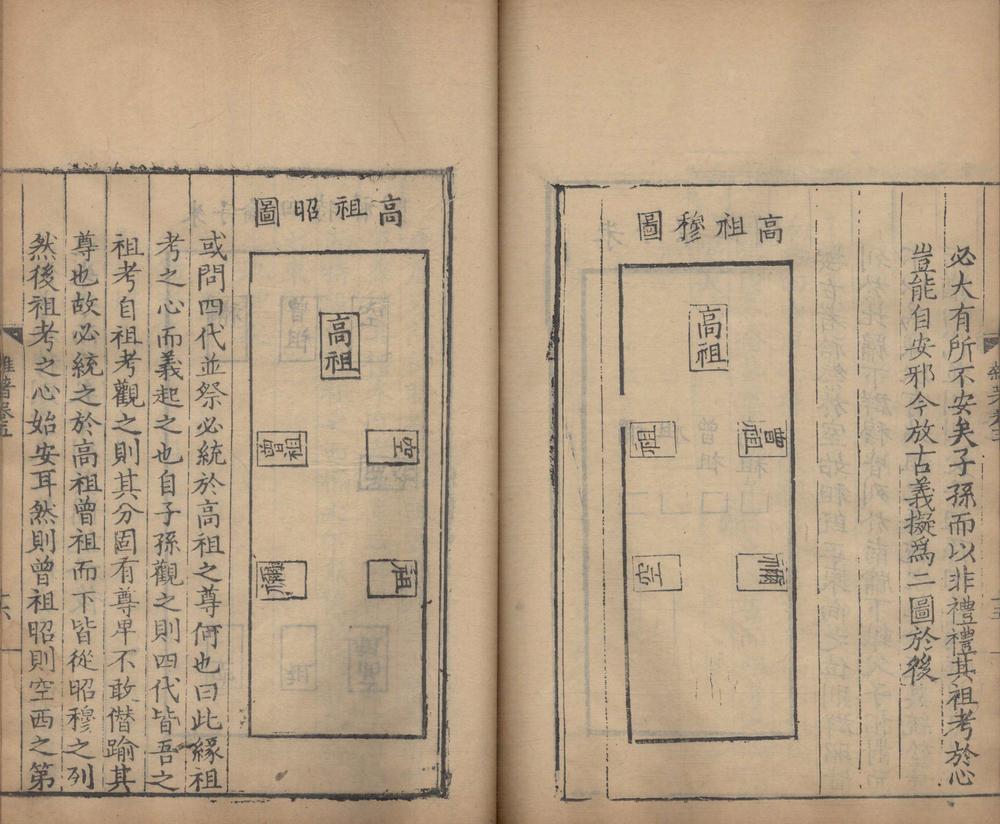 必大有所不安矣子孫而以非禮禮其祖考於心
豈能自安邪今放古義擬爲二圖於後
高祖穆圖
高祖
曾祖
祖
禰
空
高祖昭圖
高祖
空
曾祖
祖
禰
或問四代並祭必統於高祖之尊何也曰此緣祖
考之心而義起之也自子孫觀之則四代皆吾之
祖考自祖考觀之則其分固有尊卑不敢僭踰其
尊也故必統之於高祖曾祖而下皆從昭穆之列
然後祖考之心始安耳然則曾祖昭則空西之第
雜著卷五